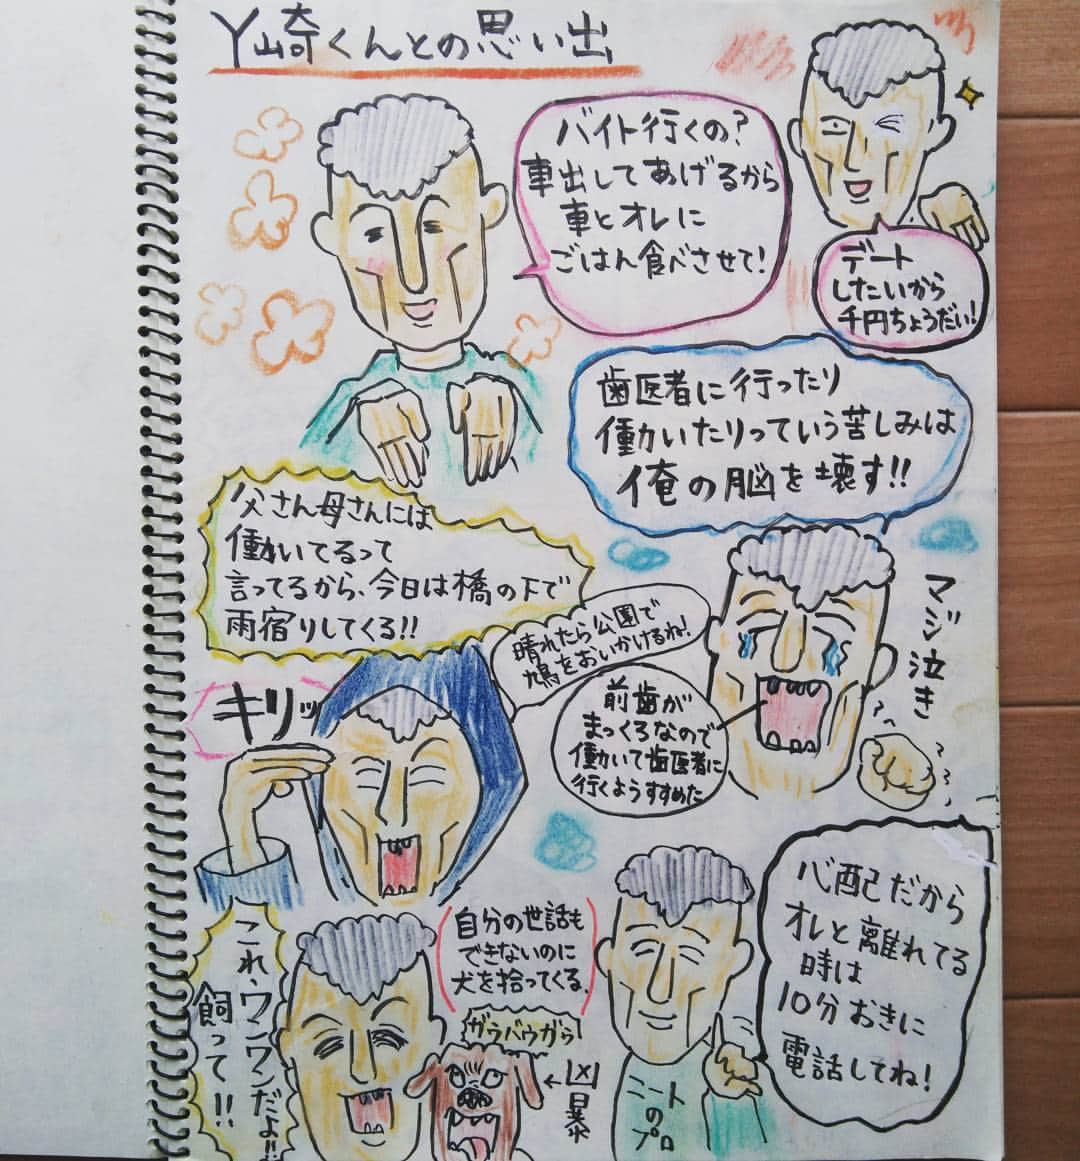 Y崎くんとの思い出
バイト行くの?
車出してあげるから
車とオレに
ごはん食べさせて!
デート
したいから
千円ちょうだい!
歯医者に行ったり
働かいたりっていう苦しみは
俺の脳を壊す!!
父さん母さんには
働いてるって
言ってるから、今日は橋の下で
雨宿りしてくる!!
晴れたら公園で
鳩をおいかけるね!
キリッ
マジ泣き
前歯が
まっくろなので
働いて歯医者に
行くようすすめた
心配だから
オレと離れてる
時は
10分おきに
電話してね!
ニート
の
プロ
自分の世話も
できないのに
犬を拾ってくる。
ガウバウガゥ
←凶暴
これ、ワンワンだよ!!
飼って!!